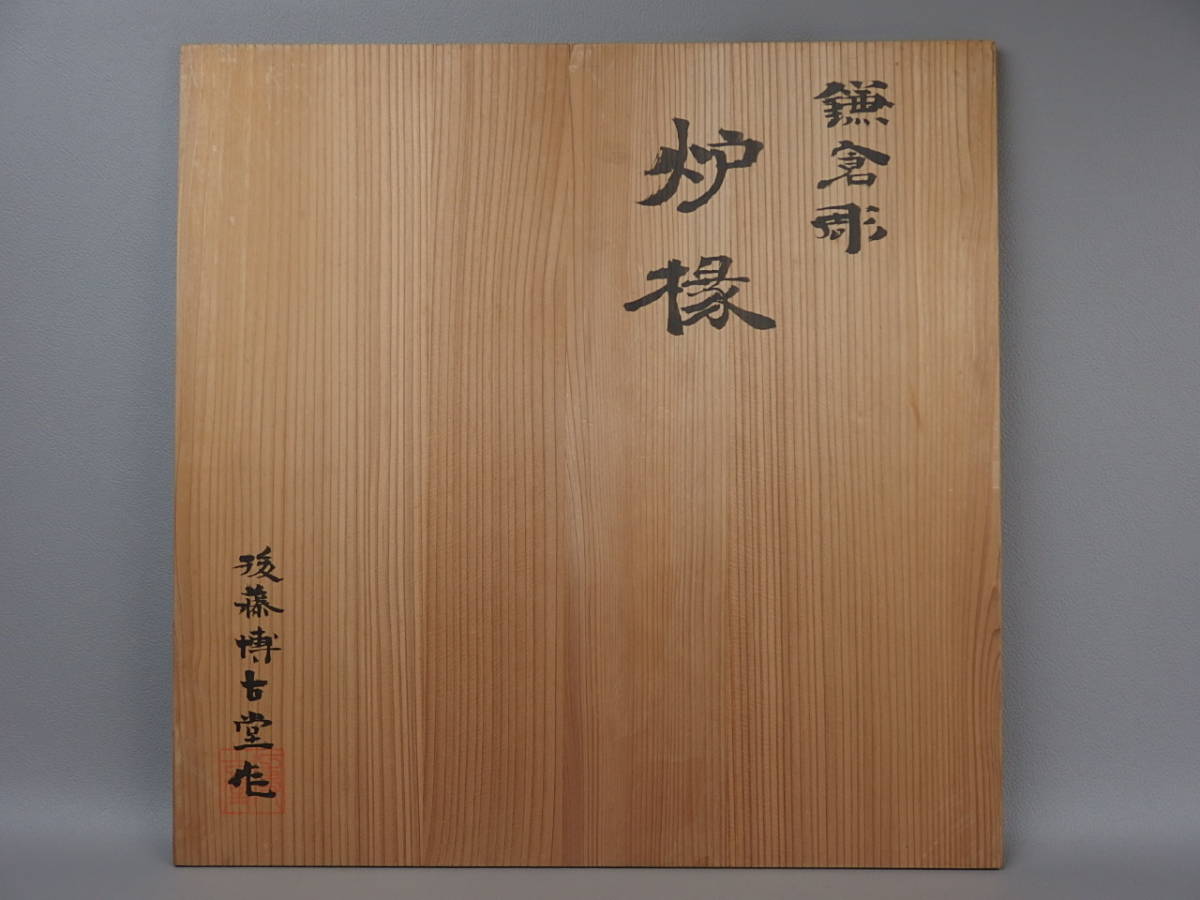 鎌倉彫
炉椽
後藤博古堂作